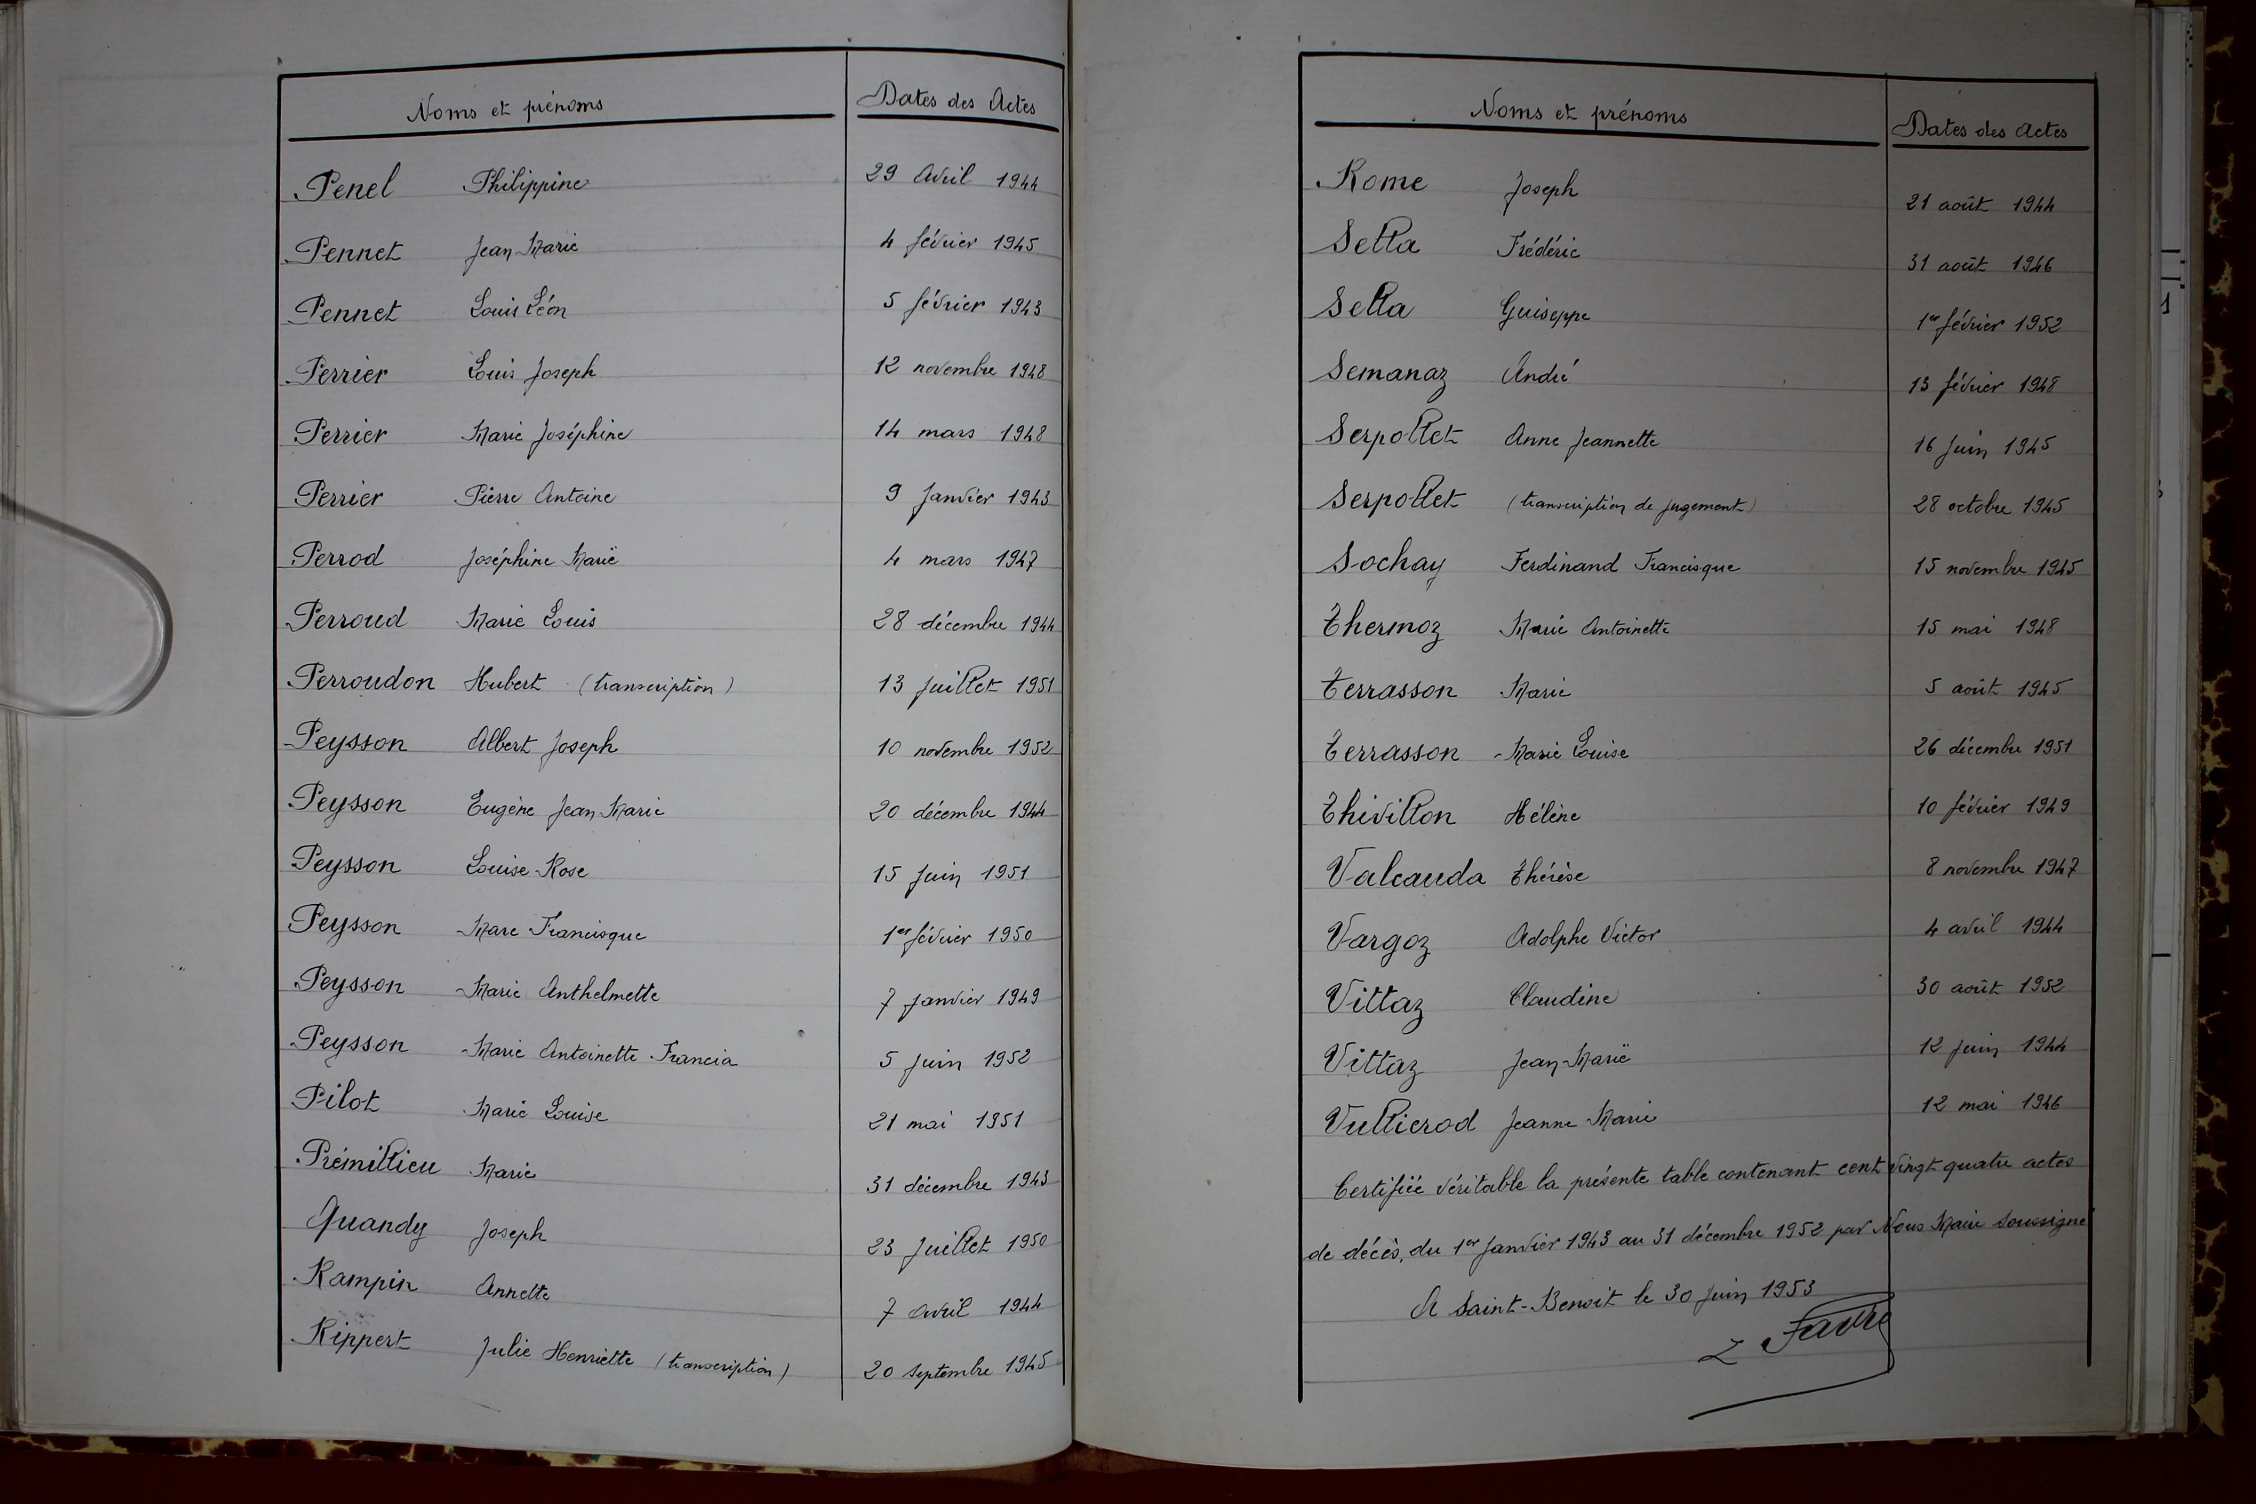 Noms et prénoms Dates des Actes
Penel Philippine 29 Avril 1944
Pennet Jean Marie 4 février 1945
Pennet Louis Léon 5 février 1943
Perrier Louis Joseph 12 novembre 1948
Perrier Marie Joséphine 14 mars 1948
Perrier Pierre Antoine 9 Janvier 1943
Perrod Joséphine Marie 4 mars 1947
Perroud Marie Louis 28 décembre 1944
Perroudon Hubert (transcription) 13 Juillet 1951
Peysson Albert Joseph 10 novembre 1952
Peysson Eugène Jean Marie 20 décembre 1944
Peysson Louise Rose 15 Juin 1951
Peysson Marc Francisque 1er février 1950
Peysson Marie Anthelmette 7 janvier 1949
Peysson Marie Antoinette Francia 5 Juin 1952
Pilot Marie Louise 21 mai 1951
Prémillieu Marie 31 décembre 1943
Quandy Joseph 23 Juillet 1950
Rampin Annette 7 avril 1944
Rippert Julie Henriette (transcription) 20 septembre 1945
Noms et prénoms Dates des Actes
Rome Joseph 21 août 1944
Sella Frédéric 31 août 1946
Sella Guiseppe 1er février 1952
Semanaz André 13 février 1948
Serpollet Anne Jeannette 16 Juin 1945
Serpollet (transcription de jugement) 28 octobre 1945
Sochay Ferdinand Francisque 15 novembre 1945
Thermoz Marie Antoinette 15 mai 1948
Terrasson Marie 5 août 1945
Terrasson Marie Louise 26 décembre 1951
Thivillon Hélène 10 février 1949
Valcauda Thérèse 8 novembre 1947
Vargoz Adolphe Victor 4 avril 1944
Vittaz Claudine 30 août 1952
Vittaz Jean-Marie 12 juin 1944
Vullierod Jeanne Marie 12 mai 1946
Certifiée véritable la présente table contenant cent vingt quatre actes
de décès, du 1er Janvier 1943 au 31 décembre 1952 par Nous Maire soussigné
A Saint-Benoit le 30 Juin 1953
L Favre